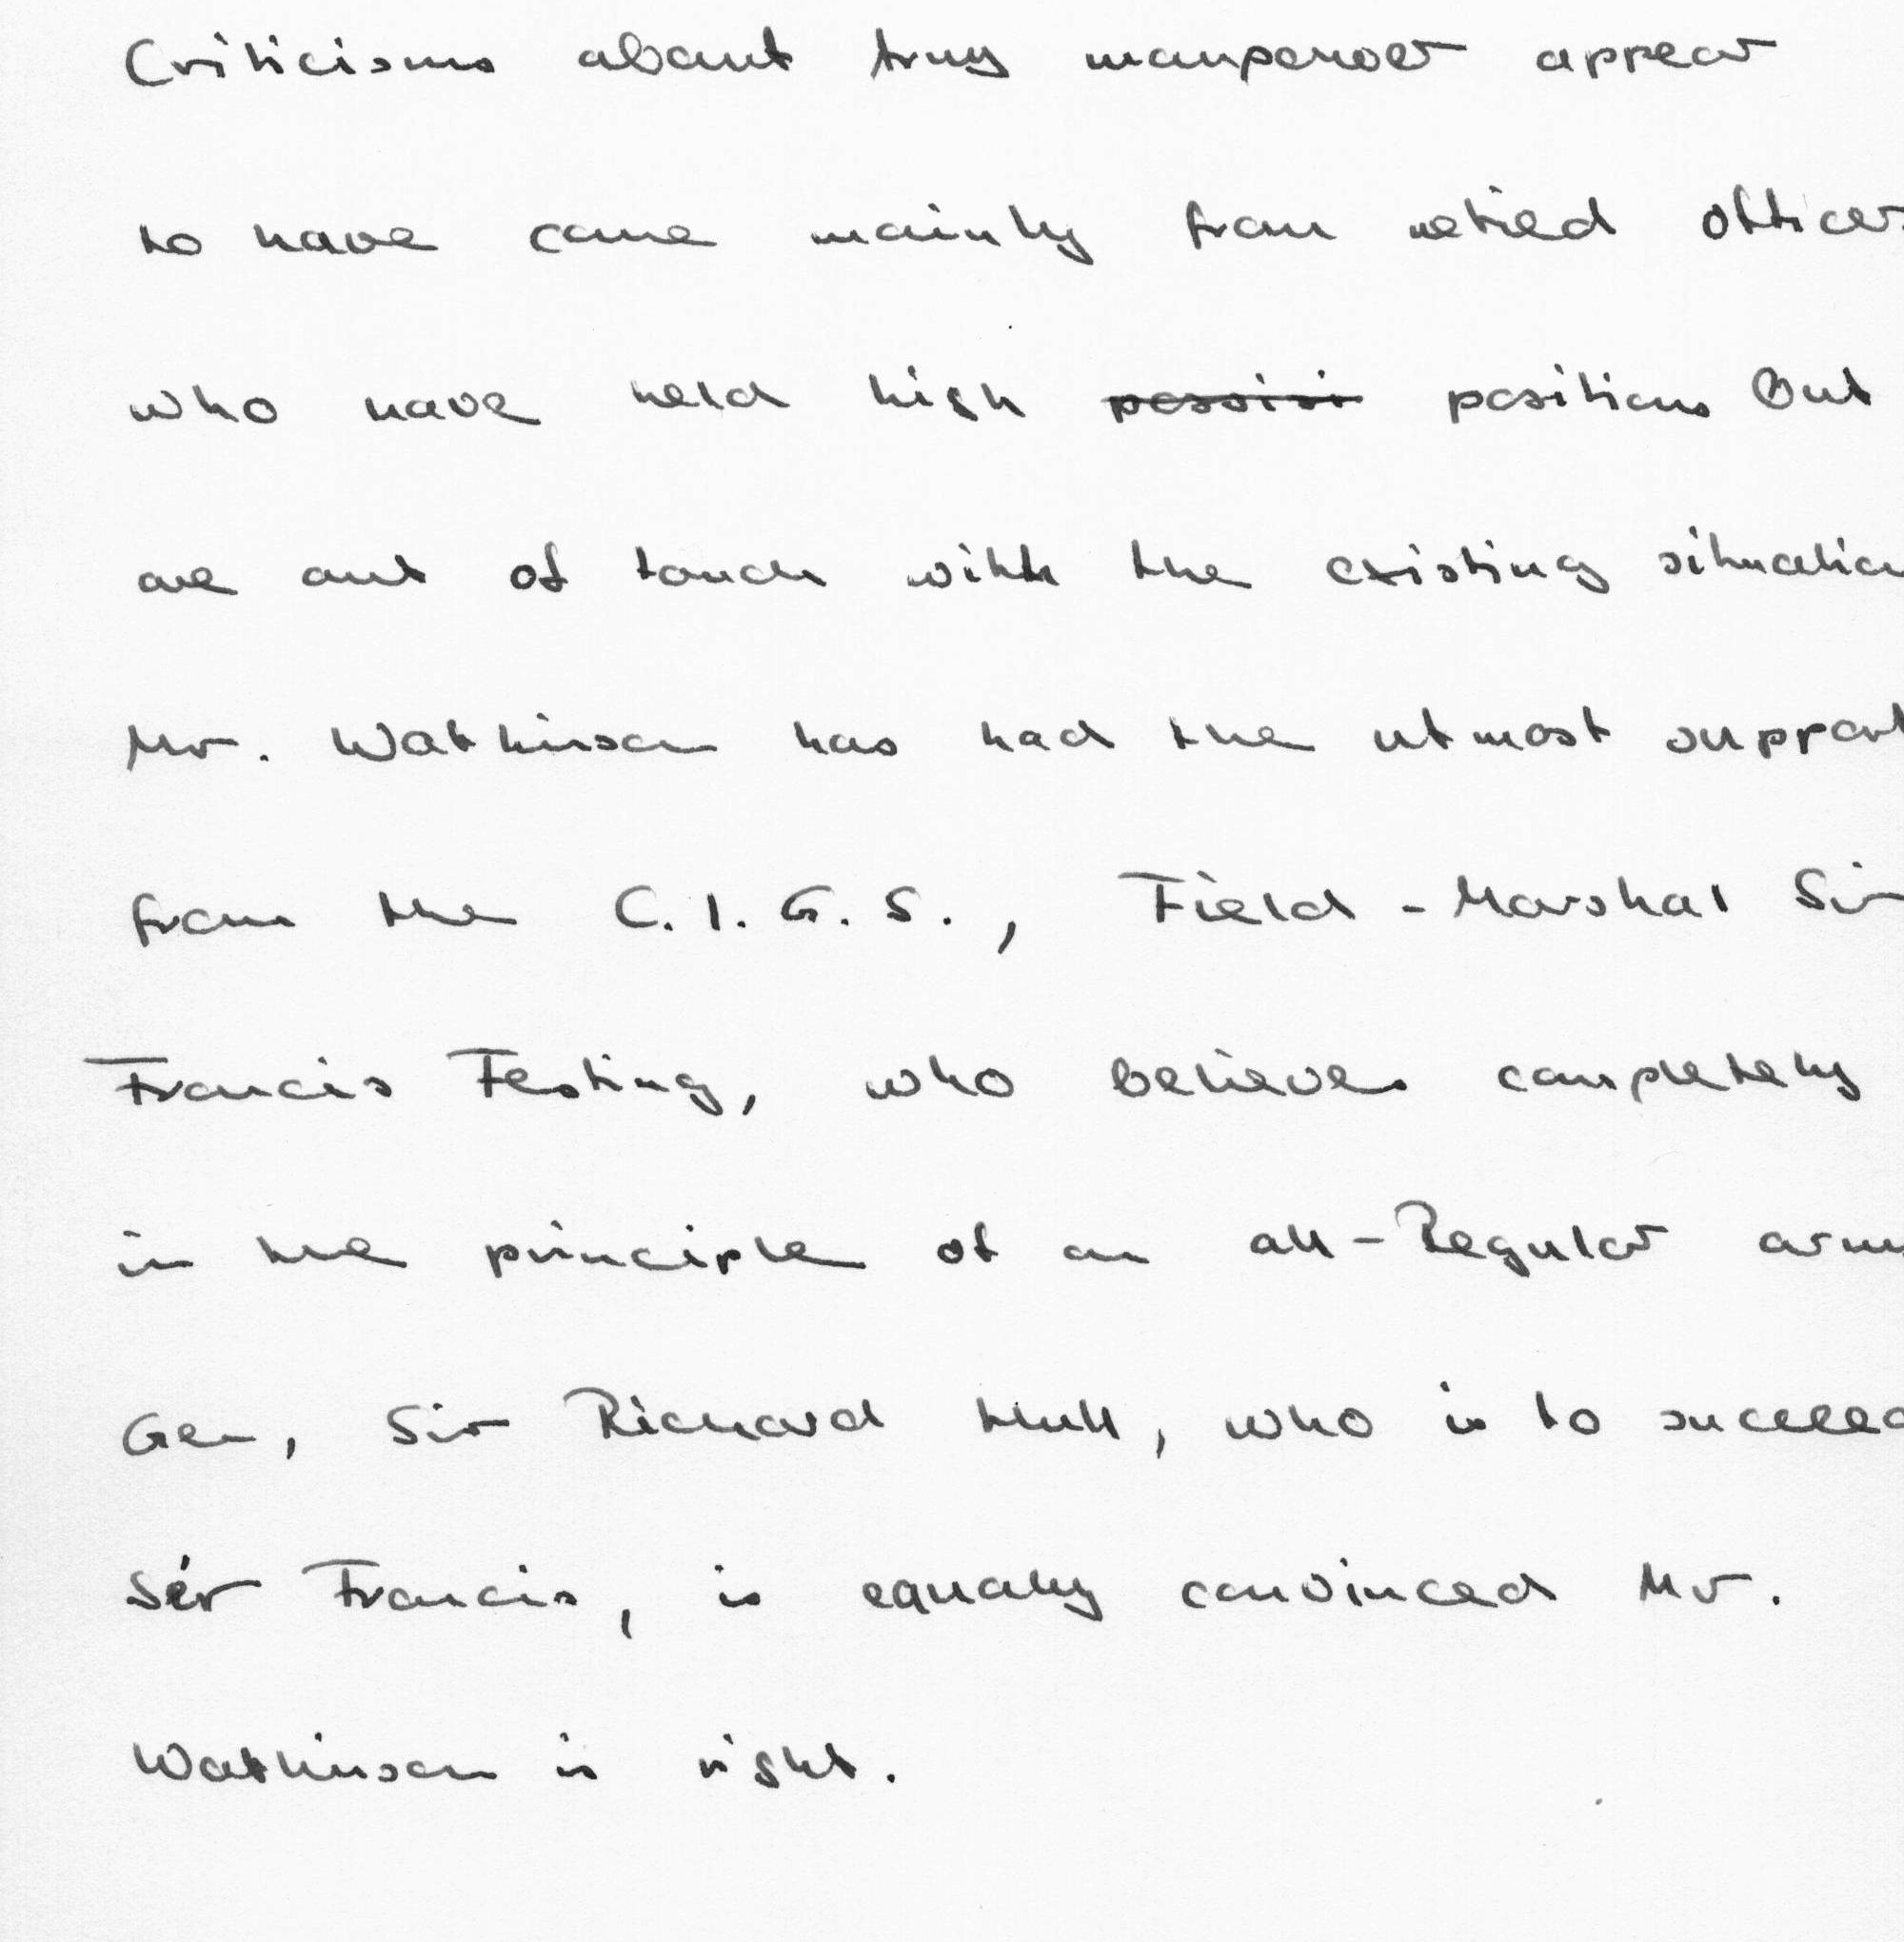 Criticisms about Army manpower appear
to have come mainly from retired officers
who have held high possisi positions but
are out of touch with the existing situation
Mr. Watkinson has had the utmost support
from the C.I.G.S., Field-Marshal Sir
Francis Festing, who believes completely
in the principle of an all-Regular army
Gen, Sir Richard Hull, who is to succeed
Sir Francis, is equally convinced Mr.
Watkinson is right.